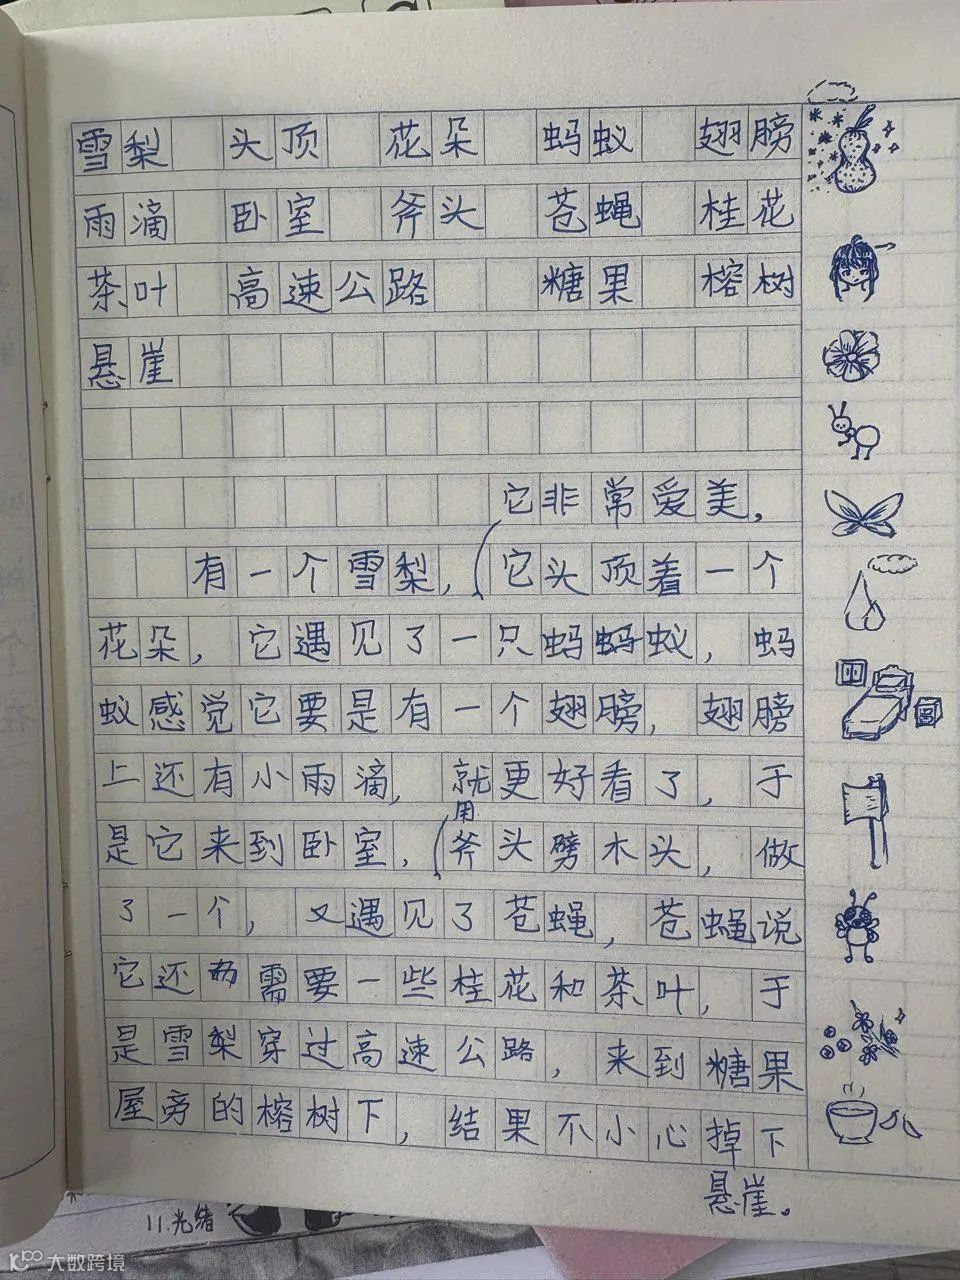 雪梨 头顶 花朵 蚂蚁 翅膀
雨滴 卧室 斧头 苍蝇 桂花
茶叶 高速公路 糖果 榕树
悬崖
它非常爱美，
有一个雪梨，它头顶着一个
花朵，它遇见了一只蚂蚂蚁，蚂
蚁感觉它要是有一个翅膀，翅膀
上还有小雨滴，就更好看了，于
用
是它来到卧室，斧头劈木头，做
了一个，又遇见了苍蝇，苍蝇说
它还需要一些桂花和茶叶，于
是雪梨穿过高速公路，来到糖果
屋旁的榕树下，结果不小心掉下
悬崖。
11.光绪
大数跨境